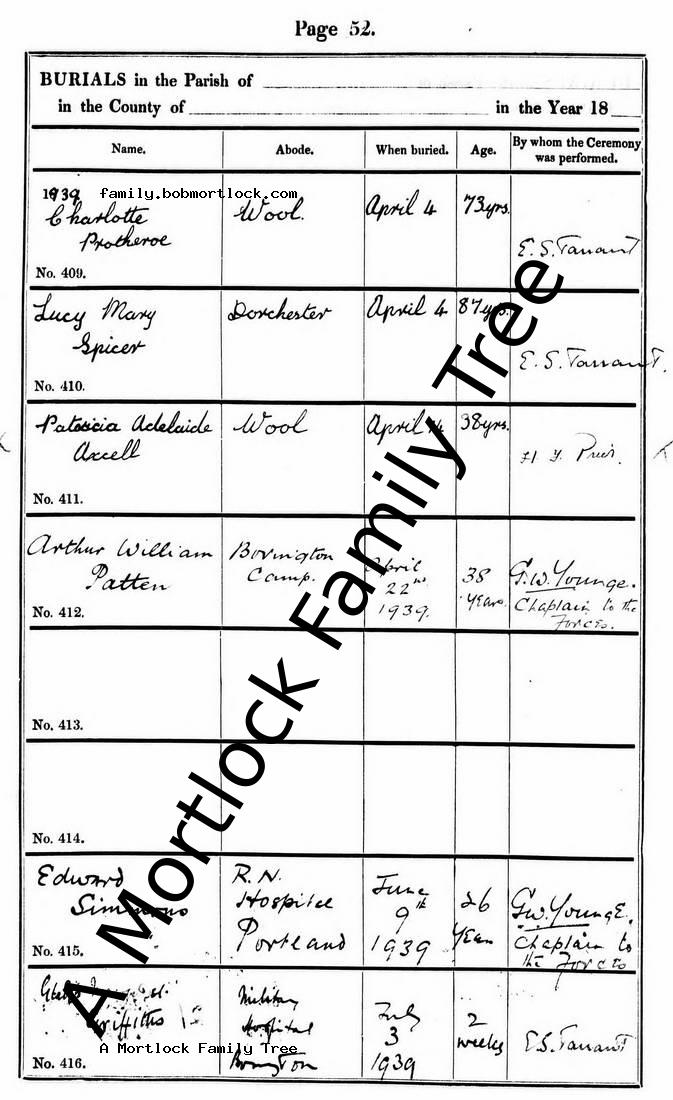 Page 52.
BURIALS in the Parish of
in the County of in the Year 18
Name. Abode. When buried. Age. By whom the Ceremony was performed.
1939 family.bobmortlock.com
Charlotte Protheroe
Wool.
April 4
73 yrs.
E. S. Tarrant
No. 409.
Lucy Mary Spicer
Dorchester
April 4
87 yrs.
E. S. Tarrant.
No. 410.
Patricia Adelaide Axcell
Wool
April
38 yrs.
No. 411.
Arthur William Patten
Bovington Camp.
April 22nd 1939.
38 Years.
G.W. Younge. Chaplain to the Forces.
No. 412.
No. 413.
No. 414.
Edward Simmons
R.N. Hospital Portland
June 9th 1939
26 Years
G.W. Younge. Chaplain to the Forces
No. 415.
Griffiths
Military Hospital Bovington
July 3 1939
2 weeks
E.S. Tarrant
No. 416.
A Mortlock Family Tree
A Mortlock Family Tree